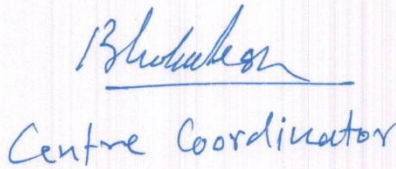 Centre Coordinator